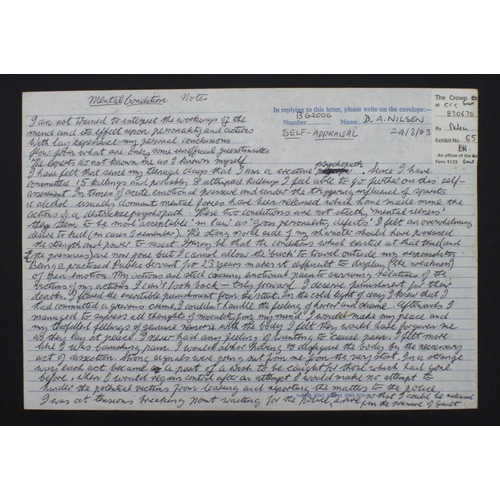 Mental Condition Notes
In replying to this letter, please write on the envelope:—
Number BG2006 Name D. A. NILSEN
SELF-APPRAISAL 24/3/83
The Crown
at CCC
830670
Exhibit No. 65
I am not trained to interpret the workings of the
mind and its effect upon personality and actions
With lay experience my personal conclusions
flow from what are only some unofficial guestimates
The experts do not know me as I know myself
I have felt that since my teenage days that I am a creative psychopath. Since I have
committed 15 killings and probably 8 attempted killings I feel able to go further on this self-
assessment. In times of acute emotional pressure and under the triggering influence of spirits
in alcohol usually dormant mental forces have been released which have made mine the
actions of a destructive psychopath. These two conditions are not strictly 'mental illness'
to be more acceptable in law as 'gross personality defects'. I felt an overwhelming
desire to kill (in cases I remember). The strong moral side of my character should have produced
the strength and power to resist. It may be that the conditions which existed at that time (and
the premises) are now gone but I cannot allow the 'buck' to travel outside my responsibility
Being a practised Public Servant for 23 years makes it difficult to display (the weakness)
of pure emotion. My actions are still causing emotional pain to surviving relatives of the
victims of my actions. I can't look back – only forward. I deserve punishment for their
deaths. I feared the inevitable punishment from the start. In the cold light of day I knew that I
had committed a grievous crime. I couldn't handle the feeling of horror and shame. Afterwards I
managed to supress all thoughts of morality from my mind. I would make my peace and
my feelings of genuine remorse with the body. I felt they would have forgiven me
as they lay at peace. I never had any feeling of wanting to 'cause pain'. I felt more
like I was banishing pain. I would rather than to disfigure the body by the necessary
act of dissection. Strong signals were going out from me from the very start. In a strange
way each act became a part of a wish to be caught for those which had gone
before. When I would regain control after an attempt I would make no attempt to
hinder the potential victim from leaving and reporting the matter to the police.
I was at tensions breaking point waiting for the police to arrive so that I could be released
from the pressure of guilt